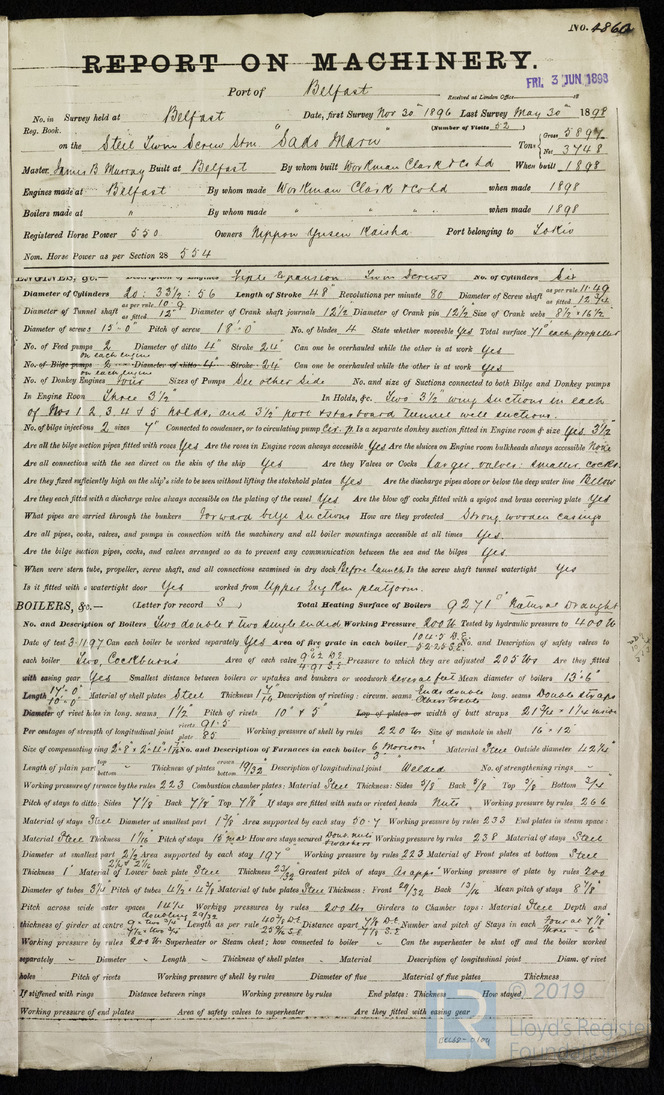 No. 4860
REPORT ON MACHINERY.
Port of Belfast
FRI. 3 JUN 1898
Received at London Office 18
No. in Survey held at Belfast Date, first Survey Nov 30th 1896 Last Survey May 30th 1898
Reg. Book. (Number of Visits 52)
on the Steel Twin Screw Str. "Sado Maru" Tons Gross 5897 Net 3748
Master James B Murray Built at Belfast By whom built Workman Clark & Co Ld When built 1898
Engines made at Belfast By whom made Workman Clark & Co Ld when made 1898
Boilers made at " By whom made " " " when made 1898
Registered Horse Power 550 Owners Nippon Yusen Kaisha Port belonging to Tokio
Nom. Horse Power as per Section 28 554
ENGINES, &c.— Description of Engines Triple Expansion Twin Screws No. of Cylinders Six
Diameter of Cylinders 20 : 33½ : 56 Length of Stroke 48" Revolutions per minute 80 Diameter of Screw shaft as per rule 11.49 as fitted 12¾
Diameter of Tunnel shaft as per rule 10.9 as fitted 12" Diameter of Crank shaft journals 12½ Diameter of Crank pin 12½ Size of Crank webs 8½ × 16½
Diameter of screws 15'-0" Pitch of screw 18'-0" No. of blades 4 State whether moveable Yes Total surface 71 each propeller
No. of Feed pumps 2 on each engine Diameter of ditto 4" Stroke 24" Can one be overhauled while the other is at work Yes
No. of Bilge pumps 2 on each engine Diameter of ditto 4" Stroke 24" Can one be overhauled while the other is at work Yes
No. of Donkey Engines Four Sizes of Pumps See other Side No. and size of Suctions connected to both Bilge and Donkey pumps
In Engine Room Three 3½" In Holds, &c. Two 3½" wing suctions in each
of Nos 1 2, 3, 4 & 5 holds, and 3½" port & starboard tunnel well suctions.
No. of bilge injections 2 sizes 7" Connected to condenser, or to circulating pump Cir. p. Is a separate donkey suction fitted in Engine room & size Yes 3½
Are all the bilge suction pipes fitted with roses Yes Are the roses in Engine room always accessible Yes Are the sluices on Engine room bulkheads always accessible None
Are all connections with the sea direct on the skin of the ship Yes Are they Valves or Cocks Larger, valves: smaller cocks.
Are they fixed sufficiently high on the ship's side to be seen without lifting the stokehold plates Yes Are the discharge pipes above or below the deep water line Below
Are they each fitted with a discharge valve always accessible on the plating of the vessel Yes Are the blow off cocks fitted with a spigot and brass covering plate Yes
What pipes are carried through the bunkers Forward bilge suctions How are they protected Strong wooden casings
Are all pipes, cocks, valves, and pumps in connection with the machinery and all boiler mountings accessible at all times Yes.
Are the bilge suction pipes, cocks, and valves arranged so as to prevent any communication between the sea and the bilges Yes
When were stern tube, propeller, screw shaft, and all connections examined in dry dock Before launch Is the screw shaft tunnel watertight Yes
Is it fitted with a watertight door Yes worked from Upper Eng Rm platform.
BOILERS, &c.— (Letter for record S) Total Heating Surface of Boilers 9271 Natural Draught
No. and Description of Boilers Two double & two single ended Working Pressure 200 lb Tested by hydraulic pressure to 400 lb
Date of test 3.11.97 Can each boiler be worked separately Yes Area of fire grate in each boiler 104.5 D.E. 52.25 S.E. No. and Description of safety valves to
each boiler Two, Cockburn's Area of each valve 9.62 D.E. 4.91 S.E. Pressure to which they are adjusted 205 lbs Are they fitted
with easing gear Yes Smallest distance between boilers or uptakes and bunkers or woodwork several feet Mean diameter of boilers 13'-6"
Length 17'-0" 10'-0" Material of shell plates Steel Thickness Description of riveting: circum. seams Ends double Centre treble long. seams Double straps
Diameter of rivet holes in long. seams 1½" Pitch of rivets 10" & 5" Lap of plates or width of butt straps
Per centages of strength of longitudinal joint rivets 91.5 plate 85 Working pressure of shell by rules 220 lbs Size of manhole in shell 16 × 12"
Size of compensating ring No. and Description of Furnaces in each boiler 6 Morison 3 Material Steel Outside diameter 42¼"
Length of plain part top bottom Thickness of plates crown bottom 19/32" Description of longitudinal joint Welded No. of strengthening rings "
Working pressure of furnace by the rules 223 Combustion chamber plates: Material Steel Thickness: Sides 5/8" Back 5/8 Top 5/8 Bottom 3/4"
Pitch of stays to ditto: Sides 7⅞ Back 7⅞ Top 7⅞ If stays are fitted with nuts or riveted heads Nuts Working pressure by rules 266
Material of stays Steel Diameter at smallest part 1⅜ Area supported by each stay 50.7 Working pressure by rules 233 End plates in steam space:
Material Steel Thickness 1 1/16 Pitch of stays How are stays secured Doub. nuts & washers Working pressure by rules 238 Material of stays Steel
Diameter at smallest part 2½ Area supported by each stay 197" Working pressure by rules 223 Material of Front plates at bottom Steel
Thickness 1" Material of Lower back plate Steel Thickness 23/32 Greatest pitch of stays As appd Working pressure of plate by rules 200
Diameter of tubes 3¼ Pitch of tubes 4½ × 4⅜ Material of tube plates Steel Thickness: Front 29/32 Back 13/16 Mean pitch of stays 8⅞"
Pitch across wide water spaces 14¼ Working pressures by rules 200 lbs Girders to Chamber tops: Material Steel Depth and
doubling 29/32
thickness of girder at centre Length as per rule Distance apart 7⅞ D.E. 7⅞ S.E. Number and pitch of Stays in each Four at 7⅞
Working pressure by rules 200 lbs Superheater or Steam chest; how connected to boiler " Can the superheater be shut off and the boiler worked
separately " Diameter " Length " Thickness of shell plates " Material Description of longitudinal joint " Diam. of rivet
holes Pitch of rivets Working pressure of shell by rules Diameter of flue Material of flue plates Thickness
If stiffened with rings Distance between rings Working pressure by rules End plates: Thickness How stayed
Working pressure of end plates Area of safety valves to superheater Are they fitted with easing gear
© 2019
LR
Lloyd's Register
Foundation